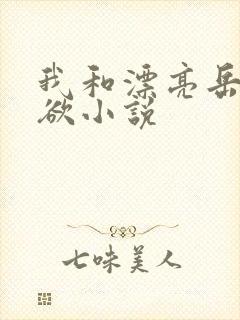 我和漂亮岳
欲小説
七味美人